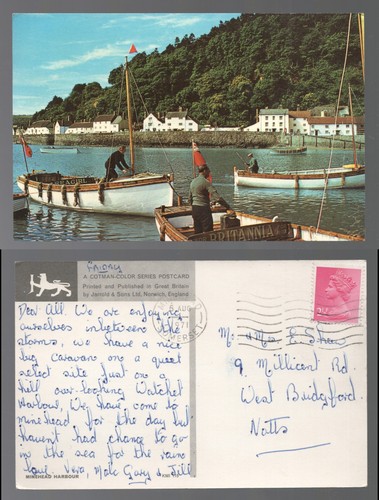 BRITANNIA
FRIDAY
A COTMAN-COLOR SERIES POSTCARD
Printed and Published in Great Britain
by Jarrold & Sons Ltd, Norwich, England
Dear All. We are enjoying
ourselves inbetween the
storms, we have a nice
big caravan on a quiet
select site just on a
hill over-looking Watchet
Harbour, We have, come to
minehead for the day but
havent had chance to go
in the sea for the rain
Love. Vera, Male Gary & Jill
MINEHEAD HARBOUR
AUG
1971
SOMERSET
Mr & Mrs E. Shaw
9, Millicent Rd.
West Bridgford.
Notts